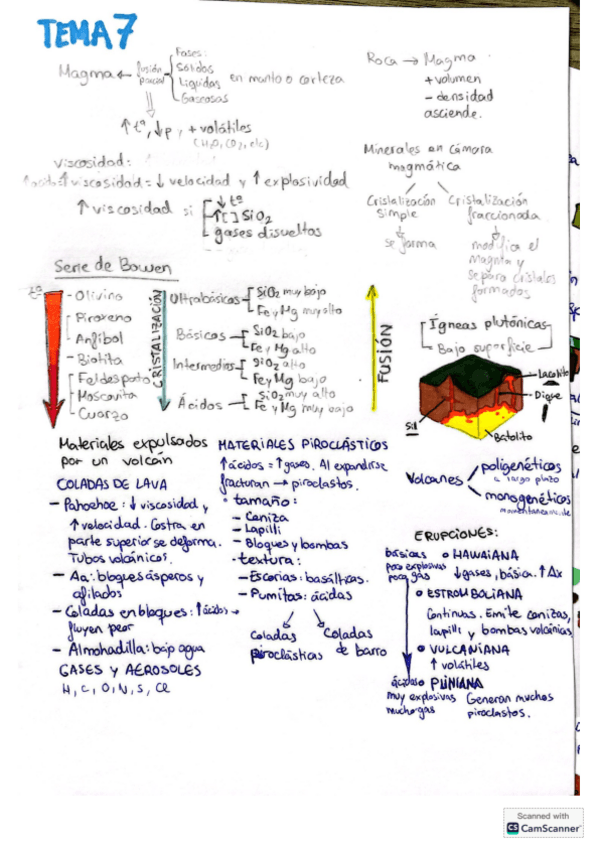 TEMA 7
Magma ← fusión parcial
Fases:
Sólidas
Líquidas
Gaseosas
en manto o corteza
↑ tª, ↓p, + volátiles
(H₂O, CO₂, etc)
viscosidad:
↑ viscosidad = ↓ velocidad y ↑ explosividad
↑ viscosidad si
↓ tª
↑ [ ] SiO₂
gases disueltos
Roca → Magma
+ volumen
- densidad
asciende.
Minerales en cámara
magmática
Cristalización simple
se forma
Cristalización fraccionada
modifica el
magma y
separa cristales
formados
Serie de Bowen
tª
- Olivino
Piroxeno
Anfíbol
- Biotita
Feldespato
Moscovita
Cuarzo
CRISTALIZACIÓN
Ultrabásicos
SiO₂ muy bajo
Fe y Mg muy alto
Básicos
SiO₂ bajo
Fe y Mg alto
Intermedios
SiO₂ alto
Fe y Mg bajo
Ácidos
SiO₂ muy alto
Fe y Mg muy bajo
FUSIÓN
Ígneas plutónicas
Bajo superficie
Lacolito
Dique
Sill
Batolito
Volcanes
poligenéticos
a largo plazo
monogenéticos
Materiales expulsados
por un volcán
COLADAS DE LAVA
- Pahoehoe: ↓ viscosidad y
↑ velocidad. Costra en
parte superior se deforma.
Tubos volcánicos.
- Aa: bloques ásperos y
afilados
- Coladas en bloques: ↑ ácidos →
fluyen peor
- Almohadilla: bajo agua
GASES Y AEROSOLES
H, C, O, N, S, Cl
MATERIALES PIROCLÁSTICOS
↑ ácidos = ↑ gases. Al expandirse
fracturan → piroclastos.
· tamaño:
- Ceniza
- Lapilli
- Bloques y bombas
· textura:
- Escorias: basálticas.
- Pumitas: ácidas
Coladas piroclásticas
Coladas de barro
ERUPCIONES:
básicas
poco explosivas
poco gas
o HAWAIANA
↓ gases, básica. ↑ Δx
o ESTROMBOLIANA
Continuas. Emite cenizas,
lapilli y bombas volcánicas
o VULCANIANA
↑ volátiles
ácidas
muy explosivas
mucho gas
o PLINIANA
Generan muchos
piroclastos.
Scanned with
CS CamScanner